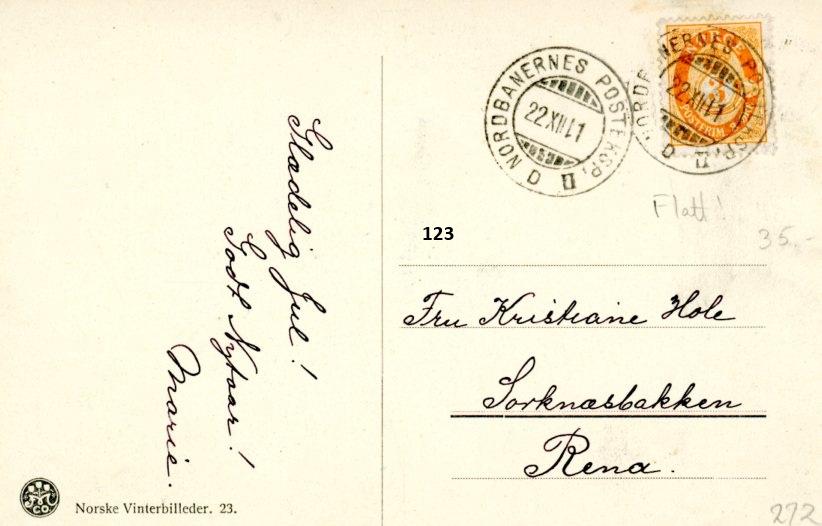 NORDBANERNES POSTEKSP. II D
22 XII 11
NORGE
3
POSTFRIM.
NORDBANERNES POSTEKSP. II D
22 XII 11
Flatt!
35.-
123
Glædelig Jul!
Godt Nytaar!
Marie.
Fru Kristiane Hole
Sorknæsbakken
Rena.
CO.
Norske Vinterbilleder. 23.
272